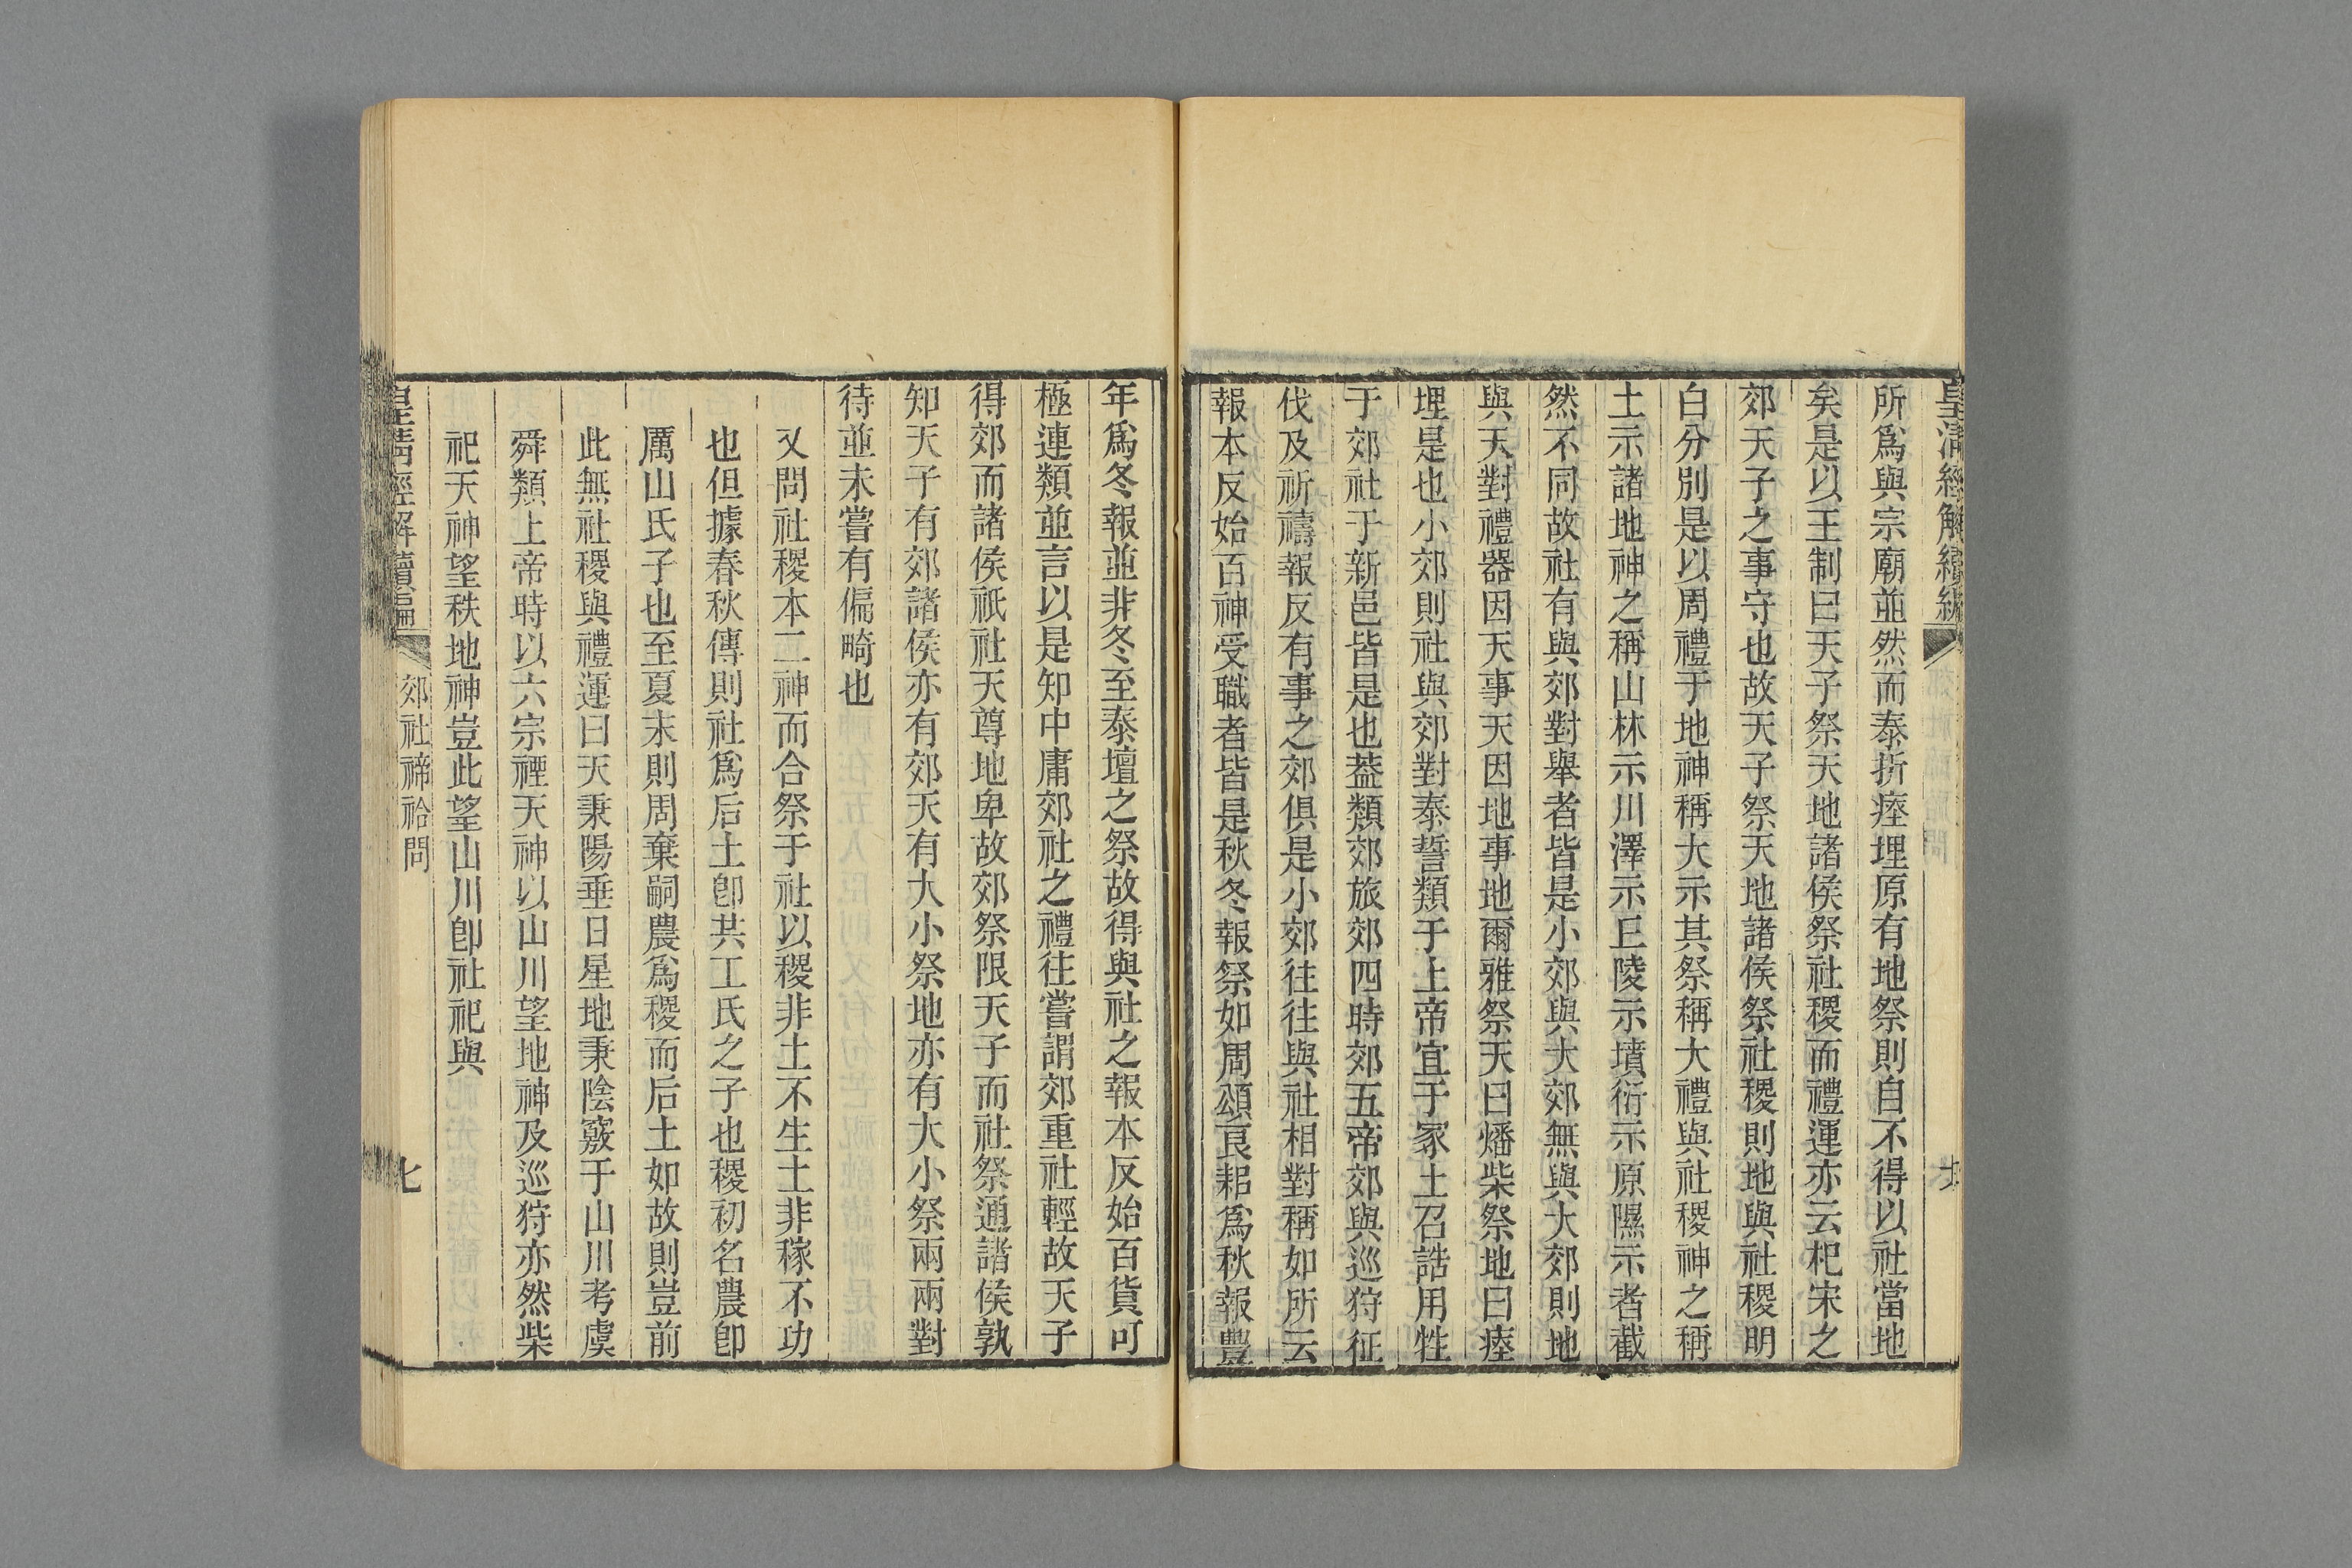 皇清經解續編
所爲與宗廟並然而泰折瘞埋原有地祭則自不得以社當地
矣是以王制曰天子祭天地諸侯祭社稷而禮運亦云杞宋之
郊天子之事守也故天子祭天地諸侯祭社稷則地與社稷明
白分別是以周禮于地神稱大示其祭稱大禮與社稷神之稱
土示諸地神之稱山林示川澤示丘陵示墳衍示原隰示者截
然不同故社有與郊對舉者皆是小郊與大郊無與大郊則地
與天對禮器因天事天因地事地爾雅祭天曰燔柴祭地曰瘞
埋是也小郊則社與郊對泰誓類于上帝宜于冢土召誥用牲
于郊社于新邑皆是也葢類郊旅郊四時郊五帝郊與巡狩征
伐及祈禱報反有事之郊俱是小郊往往與社相對稱如所云
報本反始百神受職者皆是秋冬報祭如周頌良耜爲秋報豐
年爲冬報並非冬至泰壇之祭故得與社之報本反始百貨可
極連類並言以是知中庸郊社之禮往嘗謂郊重社輕故天子
得郊而諸侯祇社天尊地卑故郊祭限天子而社祭通諸侯孰
知天子有郊諸侯亦有郊天有大小祭地亦有大小祭兩兩對
待並未嘗有偏畸也
又問社稷本二神而合祭于社以稷非土不生土非稼不功
也但據春秋傳則社爲后土卽共工氏之子也稷初名農卽
厲山氏子也至夏末則周棄嗣農爲稷而后土如故則豈前
此無社稷與禮運曰天秉陽垂日星地秉陰竅于山川考虞
舜類上帝時以六宗禋天神以山川望地神及巡狩亦然柴
祀天神望秩地神豈此望山川卽社祀與
皇清經解續編
郊社禘祫問
七